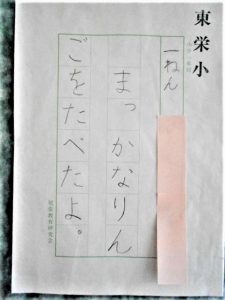 東栄小
一ねん
まっかなりん
ごをたべたよ。